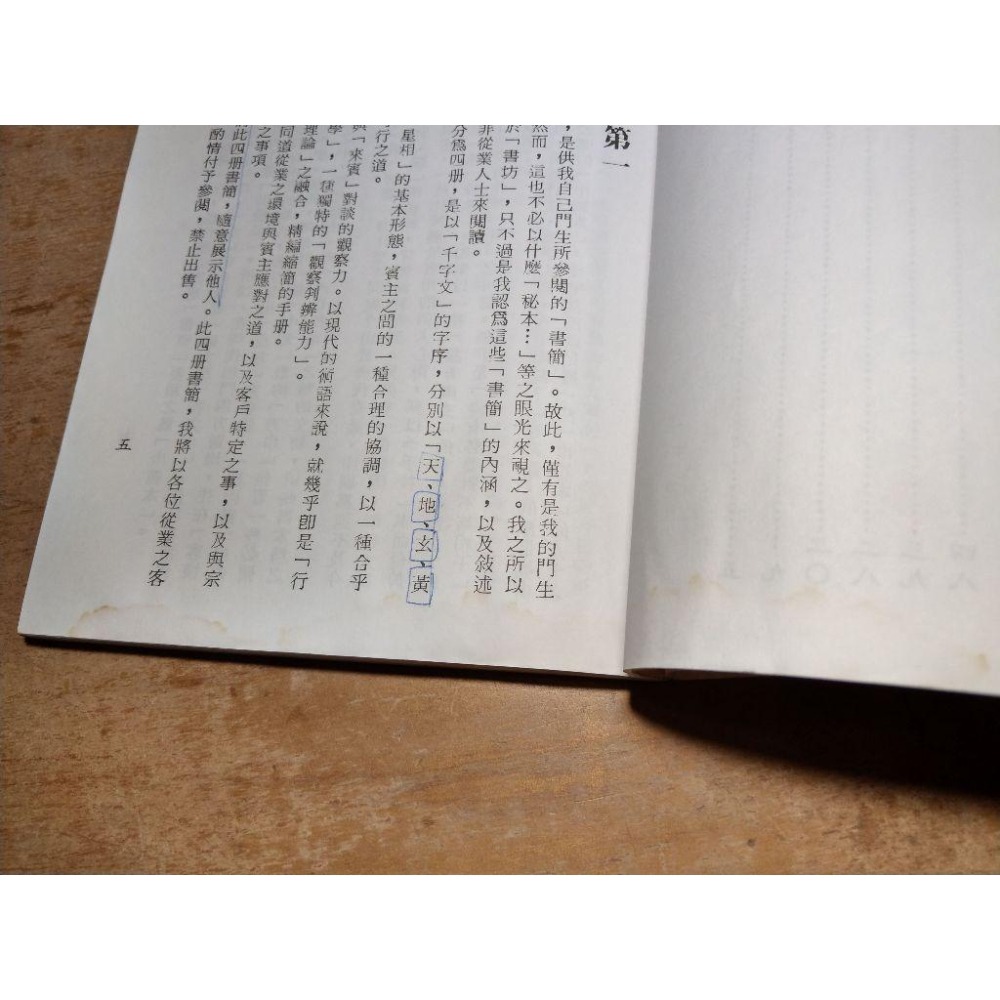 第一
，是供我自己門生所參閱的「書簡」。故此，僅有是我的門生
然而，這也不必以什麼「秘本…」等之眼光來視之。我之所以
於「書坊」，只不過是我認爲這些「書簡」的內涵，以及敍述
非從業人士來閱讀。
分爲四册，是以「千字文」的字序，分別以「天、地、玄、黃
星相」的基本形態，賓主之間的一種合理的協調，以一種合乎
行之道。
與「來賓」對談的觀察力。以現代的術語來說，就幾乎卽是「行
學」，一種獨特的「觀察判辨能力」。
理論」之融合，精編縮簡的手册。
同道從業之環境與賓主應對之道，以及客戶特定之事，以及與宗
之事項。
此四册書簡，隨意展示他人。此四册書簡，我將以各位從業之客
酌情付予參閱，禁止出售。
五